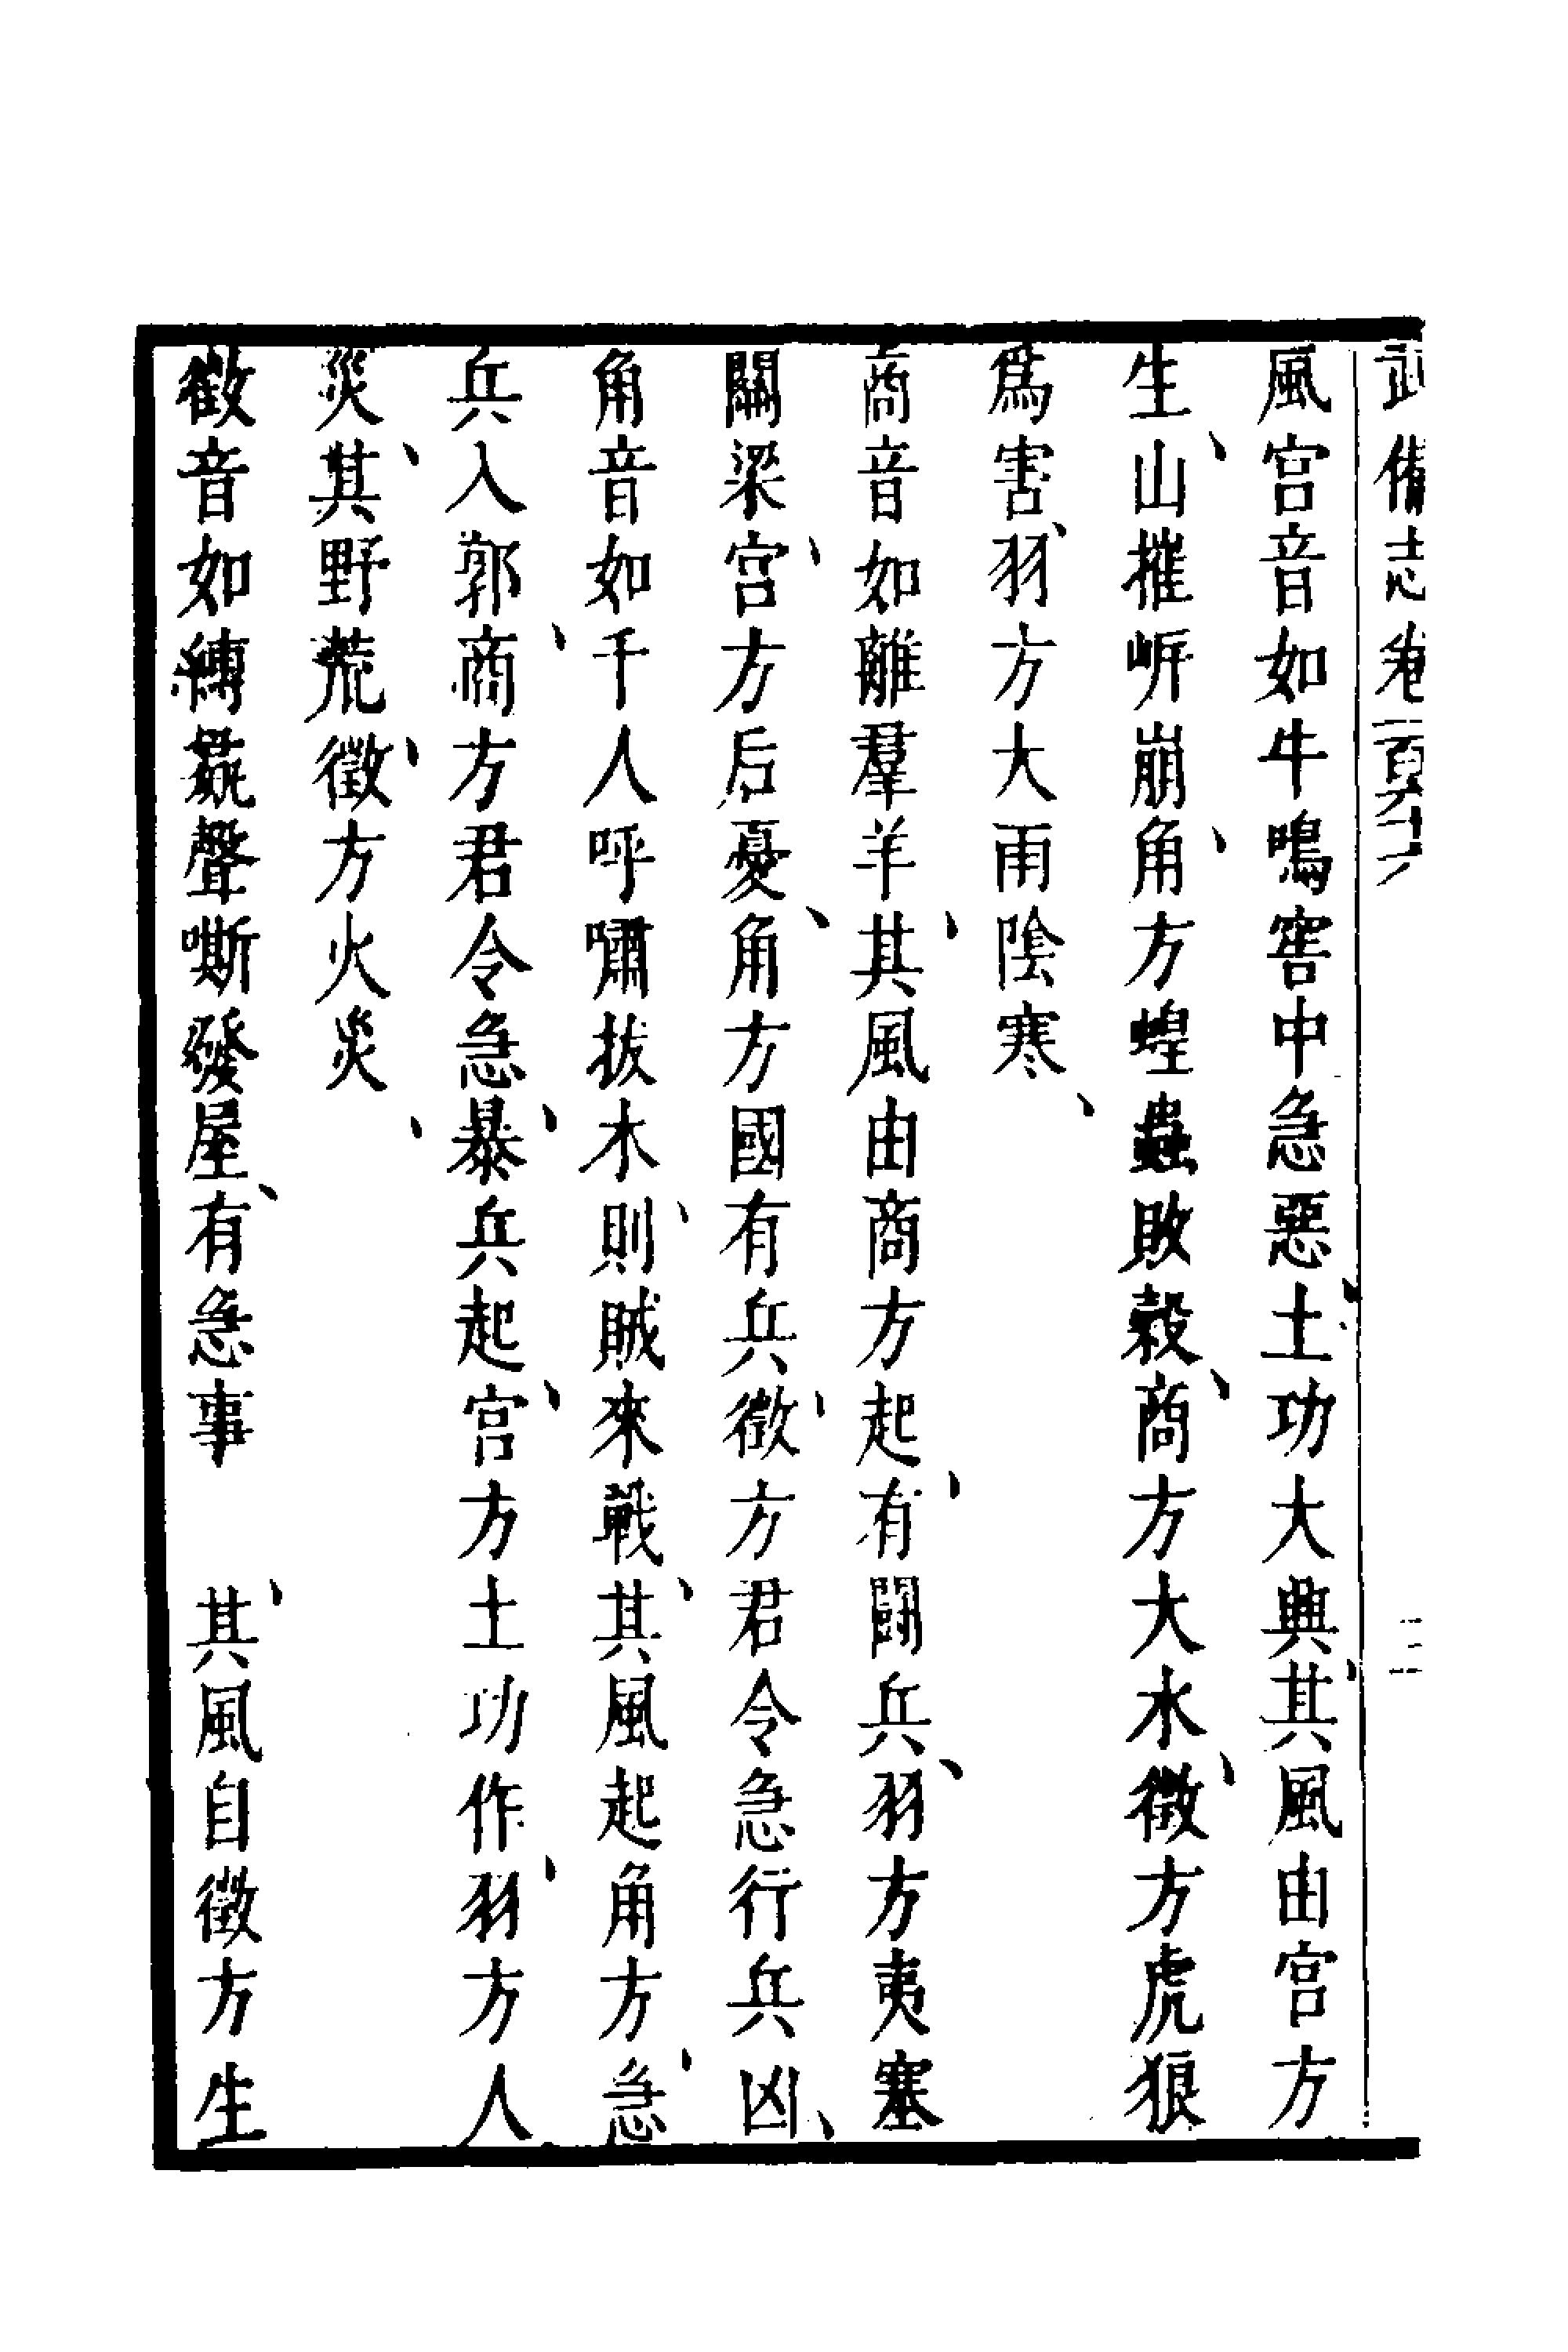 武備志卷一百六十六 二
風宮音如牛鳴窖中急惡土功大興其風由宮方
生山摧岍崩角方蝗蟲敗穀商方大水徵方虎狼
爲害羽方大雨陰寒
商音如離羣羊其風由商方起有鬭兵羽方夷塞
關梁宮方后憂角方國有兵徵方君令急行兵凶
角音如千人呼嘯拔木則賊來戰其風起角方急
兵入郭商方君令急暴兵起宮方土功作羽方人
災其野荒徵方火災
徵音如縛彘聲嘶發屋有急事 其風自徵方生